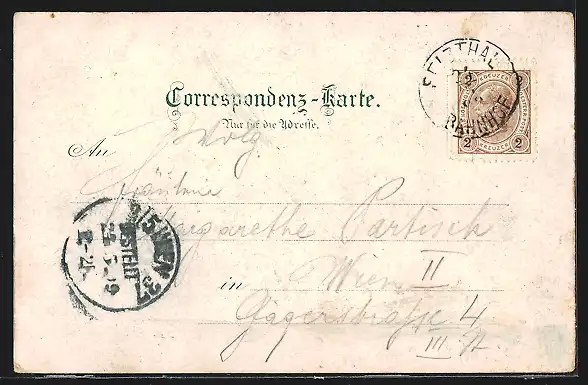 SELZTHAL
BAHNHOF
2 KREUZER 2
Correspondenz-Karte.
Nur für die Adresse.
An Wolg
Fräulein
Margarethe Partisch
in Wien II
Jägerstrasse 4
III
WIEN 37
BESTELLT